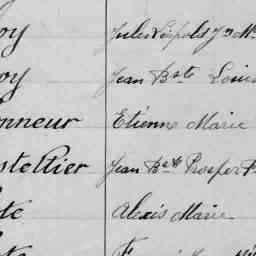 oy Jules Léopold Jn M
oy Jean Bste Louis
onneur Etienne Marie
stellier Jean Bste Prosper F
te Alexis Marie